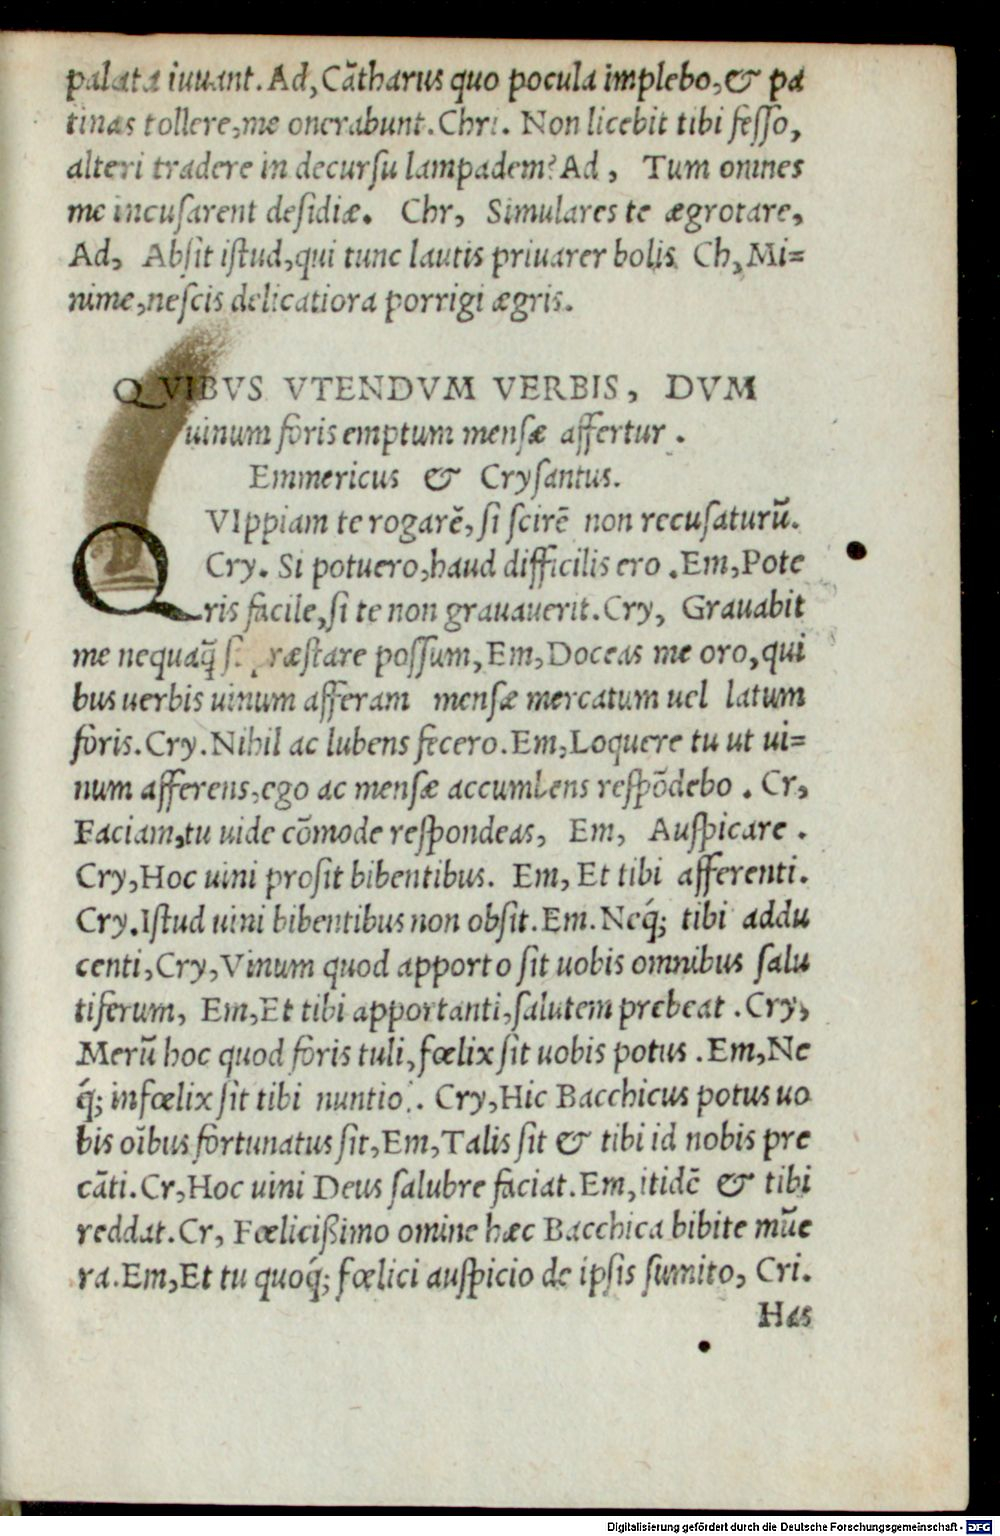 palata iuuant. Ad, Cãtharus quo pocula implebo, & pa
tinas tollere, me onerabunt. Chri. Non licebit tibi fesso,
alteri tradere in decursu lampadem? Ad, Tum omnes
me incusarent desidiæ. Chr, Simulares te ægrotare,
Ad, Absit istud, qui tunc lautis priuarer bolis. Ch, Mi=
nime, nescis delicatiora porrigi ægris.
QVIBVS VTENDVM VERBIS, DVM
uinum foris emptum mensæ affertur.
Emmericus & Crysantus.
QVIppiam te rogarẽ, si scirẽ non recusaturũ.
Cry. Si potuero, haud difficilis ero. Em, Pote
ris facile, si te non grauauerit. Cry, Grauabit
me nequaq̃ præstare possum, Em, Doceas me oro, qui
bus uerbis uinum afferam mensæ mercatum uel latum
foris. Cry. Nihil ac lubens fecero. Em, Loquere tu ut ui=
num afferens, ego ac mensæ accumbens respõdebo. Cr,
Faciam, tu uide cõmode respondeas, Em, Auspicare.
Cry, Hoc uini prosit bibentibus. Em, Et tibi afferenti.
Cry. Istud uini bibentibus non obsit. Em. Neq́; tibi addu
centi, Cry, Vinum quod apporto sit uobis omnibus salu
tiferum, Em, Et tibi apportanti, salutem prebeat. Cry,
Merũ hoc quod foris tuli, fœlix sit uobis potus. Em, Ne
q́; infœlix sit tibi nuntio. Cry, Hic Bacchicus potus uo
bis oĩbus fortunatus sit, Em, Talis sit & tibi id nobis pre
cãti. Cr, Hoc uini Deus salubre faciat. Em, itidẽ & tibi
reddat. Cr, Fœlicißimo omine hæc Bacchica bibite mũe
ra. Em, Et tu quoq́; fœlici auspicio de ipsis sumito, Cri.
Has
Digitalisierung gefördert durch die Deutsche Forschungsgemeinschaft - DFG